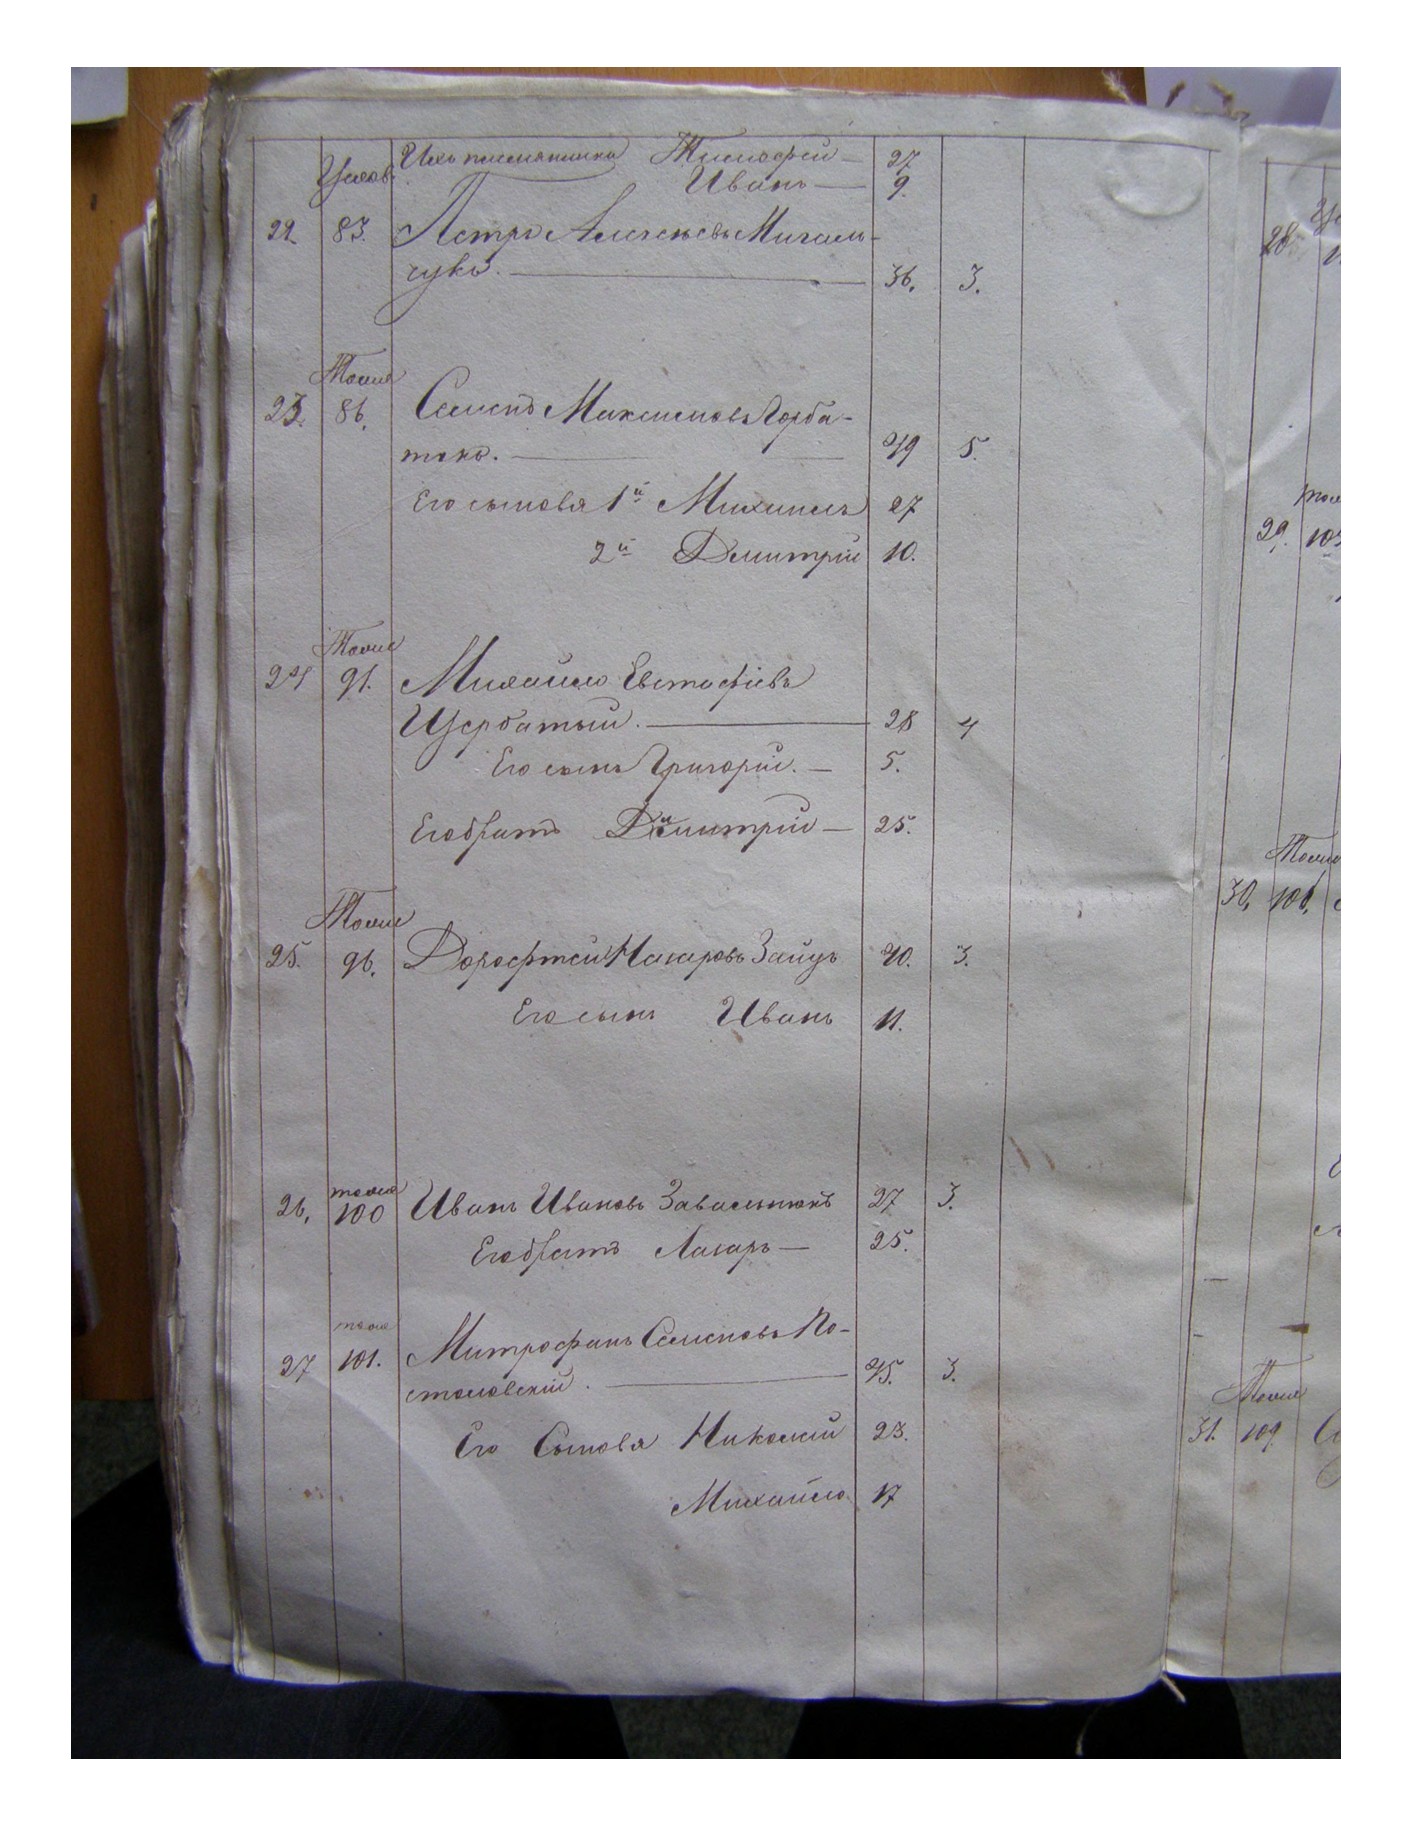 Ихъ племянники Тимофей — 27
Иванъ — 9.
22. 83. Петръ Алексѣевъ Михаль-
чукъ. — 36. 3.
Тоже
23. 86. Семенъ Максимовъ Горба-
токъ. — 49 5.
Его сыновя 1й Михаилъ 27
2й Дмитрій 10.
Тоже
24 91. Михайло Евстафіевъ
Щербатый. — 28 4
Его сынъ Григорій. — 5.
Его братъ Димитрій — 25.
Тоже
25. 96. Дорофтей Назаровъ Заицъ 40. 3.
Его сынъ Иванъ 11.
тоже
26. 100 Иванъ Ивановъ Завальнюкъ 27 3.
Его братъ Лазарь — 25.
тоже
27 101. Митрофанъ Семеновъ По-
столовскій. — 45. 3.
Его Сыновя Николай 23.
Михайло 17
28
тоже
29. 103
Тоже
30. 106.
Тоже
31. 109